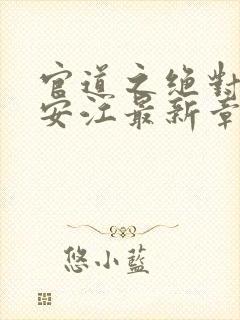 官道之絕對
安江最新章
悠小藍